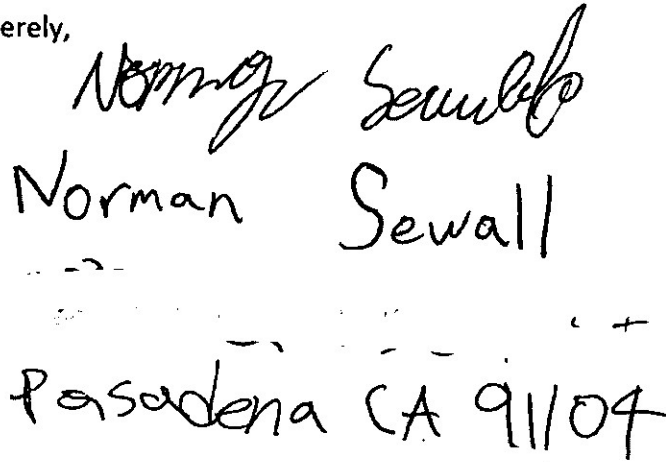 erely,
Norman Sewall
Norman Sewall
Pasadena CA 91104